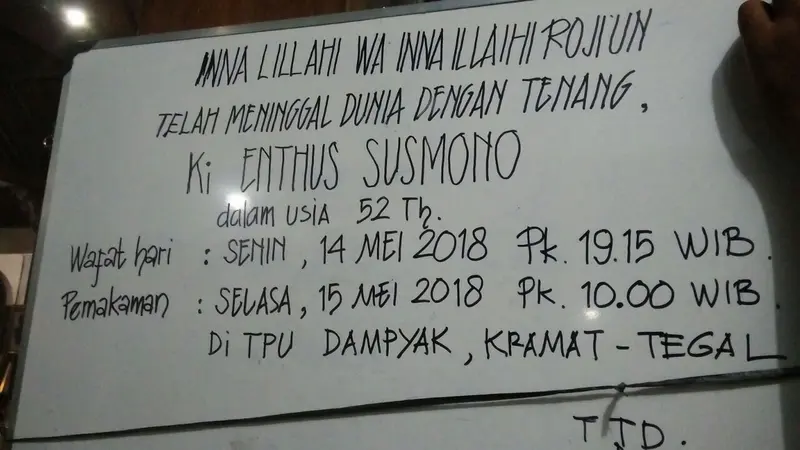 INNA LILLAHI WA INNA ILLAIHI ROJI'UN
TELAH MENINGGAL DUNIA DENGAN TENANG,
Ki ENTHUS SUSMONO
dalam usia 52 Th.
Wafat hari : SENIN, 14 MEI 2018 Pk. 19.15 WIB.
Pemakaman : SELASA, 15 MEI 2018 Pk. 10.00 WIB.
Di TPU DAMPYAK, KRAMAT - TEGAL
TTD.